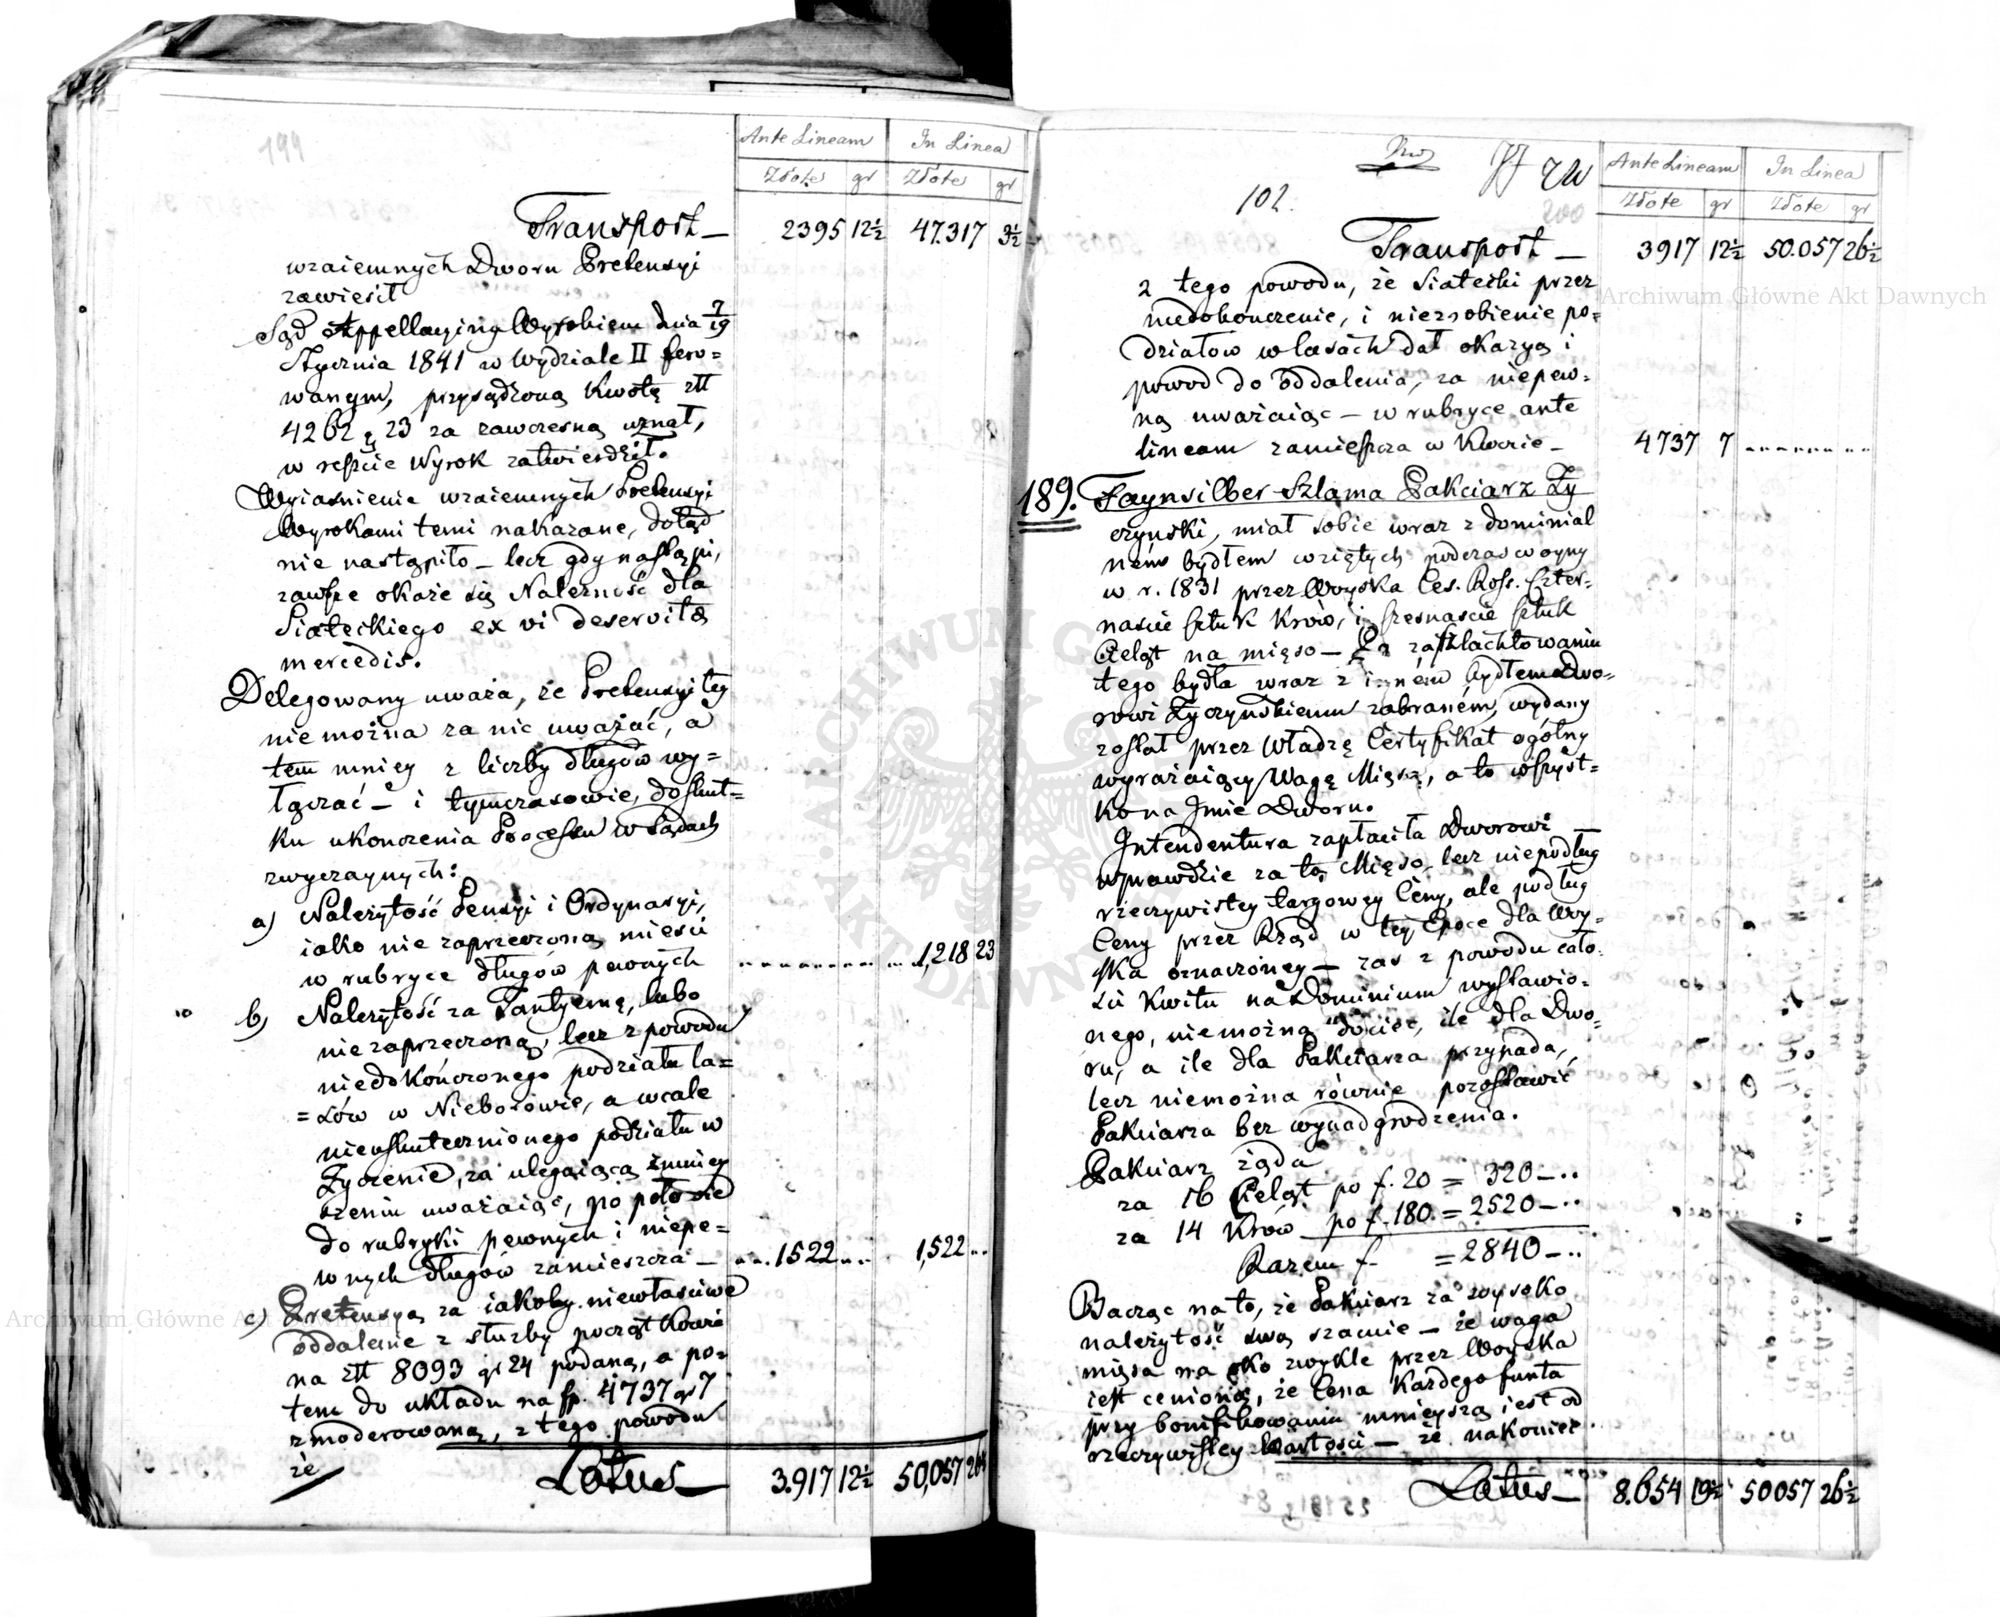 199
Ante Lineam In Linea
Złote gr Złote gr
Transport — 2395 12½ 47.317 3½
wzaiemnych Dworu Pretensyi
zawiesił
Sąd Appellacyiny Wyrokiem dnia 7/19
Stycznia 1841 w Wydziale II fero=
wanym, przysądzoną Kwotę złł
4262 g 23 za zawczesną uznał,
w reszcie Wyrok zatwierdził.
Wyiaśnienie wzaiemnych Pretensyi
Wyrokami temi nakazane, dotąd
nie nastąpiło — lecz gdy nastąpi,
zawsze okaże się Należność dla
Siateckiego ex vi deservita
mercedis.
Delegowany uważa, że Pretensyi tey
nie można za nic uważać, a
tem mniey z liczby długów wy=
łączać — i tymczasowie, do skut=
ku ukończenia Processu w Sądach
zwyczaynych:
a) Należytość Pensyi i Ordynaryi,
iako nie zaprzeczoną mieści
w rubryce długów pewnych 1,218 23
b) Należytość za Tantyemę, lubo
nie zaprzeczoną, lecz z powodu
niedokończonego podziału la=
=sów w Nieborowie, a wcale
nieuskutecznionego podziału w
Zyczenie, za ulegaiącą zmniey
szeniu uważaiąc, po połowie
do rubryki pewnych i niepe=
wnych długów zamieszcza — 1522 1,522
c) Pretensyą za iakoby niewłaściwe
oddalenie z służby początkowie
na złł 8093 gr 24 podaną, a po=
tem do układu na fp. 4737 gr 7
zmoderowaną, z tego powodu
że
Latus — 3.917 12½ 50,057 26½
102.
200
Ante Lineam In Linea
Złote gr Złote gr
Transport — 3917 12½ 50.057 26½
z tego powodu, że Siatecki przez
niedokończenie, i niezrobienie po=
działów w lasach dał okazyą i
powod do oddalenia, za niepew=
ną uważaiąc — w rubryce ante
lineam zamieszcza w Kwocie — 4737 7
189. Faynsilber Szlama Pakciarz Zy
czyński, miał sobie wraz z dominial
ném bydłem wziętych podczas woyny
w r. 1831 przez Woyska Ces. Ross. Czter=
naście sztuk Krów, i szesnaście sztuk
Cieląt na mięso — Po zaszlachtowaniu
tego bydła wraz z inném bydłem Dwo=
rowi Zyczyńskiemu zabraném, wydany
został przez Władzę Certyfikat ogólny
wyrażaiący Wagę Mięsa, a to wszyst=
ko na Imie Dworu.
Intendentura zapłaciła Dworowi
wprawdzie za to Mięso, lecz niepodług
rzeczywistey targowey Ceny, ale podług
Ceny przez Rząd w tey Epoce dla Woy=
ska oznaczoney — zaś z powodu cało=
ści Kwitu na Dominium wystawio=
nego, niemożna dociec, ile dla Dwo=
ru, a ile dla Pakciarza przypada,
lecz niemożna równie pozostawić
Pakciarza bez wynadgrodzenia.
Pakciarz żąda
za 16 Cieląt po f. 20 = 320 — ..
za 14 Krów po f. 180. = 2520 — ..
Razem f. = 2840 — ..
Bacząc na to, że Pakciarz za wysoko
należytość swą szacuie — że waga
mięsa na oko zwykle przez Woyska
iest cenioną, że Cena Każdego funta
przy bonifikowaniu mnieyszą iest od
rzeczywistey wartości — że nakoniec
Latus — 8.654 19½ 50057 26½
Archiwum Główne Akt Dawnych
Archiwum Główne Akt Dawnych
ARCHIWUM GŁÓWNE AKT DAWNYCH